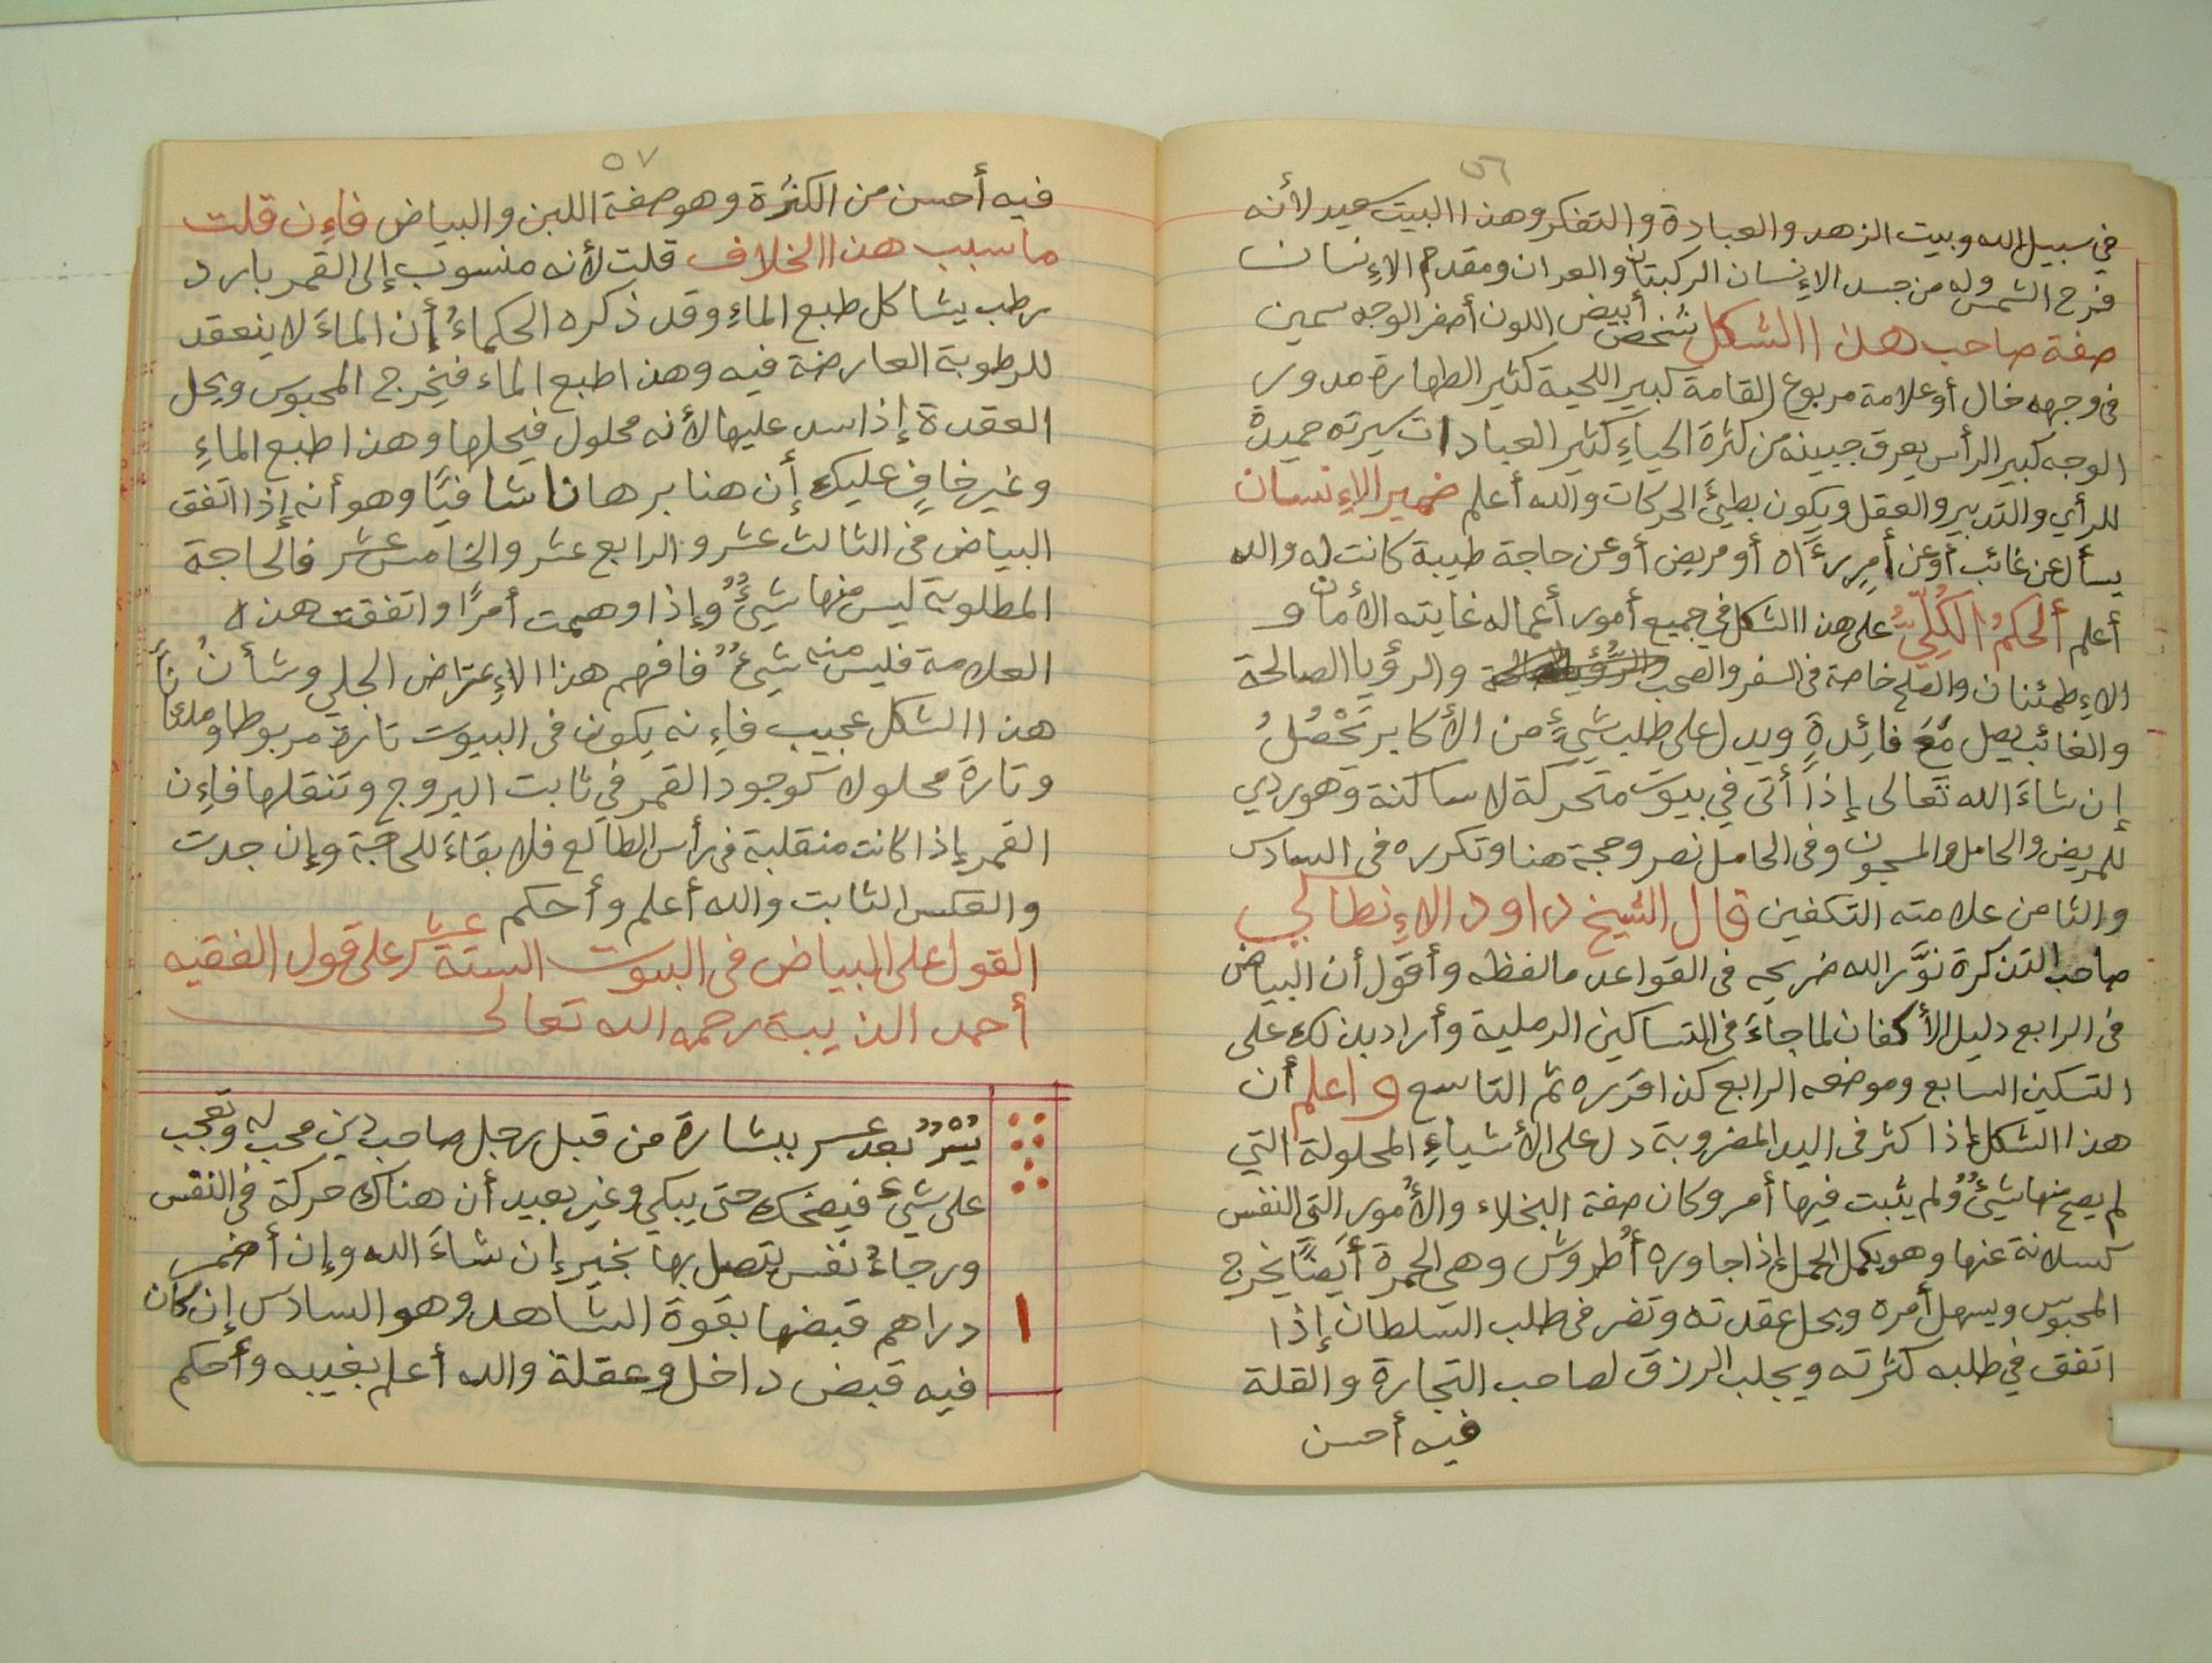 ٥٦
في سبيل الله وبيت الزهد والعبادة والتفكر وهذا البيت سعيد لأنه
فرح الشمس وله من جسد الإنسان الركبتان والعران ومقدم الإنسان
صفة صاحب هذا الشكل شخص أبيض اللون أصفر الوجه سمين
فى وجهه خال أو علامة مربوع القامة كبير اللحية كثير الطهارة مدور
الوجه كبير الرأس يعرق جبينه من كثرة الحياءِ كثير العبادات سيرته حميدة
للرأي والتدبير والعقل ويكون بطيئَ الحركات والله أعلم ضمير الإنسان
يسأل عن غائب أو عن أمرٍ رءَاه أو مريض أو عن حاجة طيبة كانت له والله
أعلم ألحكمُ الكُلِّيُّ على هذا الشكل في جميع أمور أعماله غايته الأمان و
الإطمئنان والصلح خاصة فى السفر والصحب والرؤيا الصالحة
والغائب يصل مَعَ فائِدةٍ ويدل على طلب شيءٍ من الأكابر تَحْصُلُ
إن شاءَ الله تعالى إذا أتى في بيوت متحركة لا ساكنة وهو ردي
للمريض والحامل والمسجون وفى الحامل نصر وحجة هنا وتكرره فى السادس
والثامن علامته التكفين قال الشيخ داود الإنطاكي
صاحب التذكرة نوَّر الله ضريحه فى القواعد ما لفظه وأقول أن البياض
فى الرابع دليل الأكفان لما جاءَ فى التساكين الرملية وأراد بذلك على
التسكين السابع وموضعه الرابع كذا قرره ثم التاسع واعلم أن
هذا الشكل إذا كثر فى اليد المضروبة دل على الأشياءِ المحلولة التي
لم يصح منها شيءٌ ولم يثبت فيها أمر وكان صفة البخلاء والأمور التي النفس
كسلانة عنها وهو يكمل الحمل إذا جاوره أُطروش وهي الحمرة أيضًا يخرج
المحبوس ويسهل أمره ويحل عقدته وتضر فى طلب السلطان إذا
اتفق في طلبه كثرته ويجلب الرزق لصاحب التجارة والقلة
فيه أحسن
٥٧
فيه أحسن من الكثرة وهو صفة اللبن والبياض فإن قلت
ما سبب هذا الخلاف قلت لأنه منسوب إلى القمر بارد
رطب يشاكل طبع الماءِ وقد ذكره الحكماءُ أن الماءَ لا ينعقد
للرطوبة العارضة فيه وهذا طبع الماء فيخرج المحبوس ويحل
العقدة إذا سد عليها لأنه محلول فيحلها وهذا طبع الماءِ
وغير خافٍ عليك أن هنا برهانا شافيًا وهو أنه إذا اتفق
البياض فى الثالث عشر والرابع عشر والخامس عشر فالحاجة
المطلوبة ليس منها شيءٌ وإذا وهمت أمرًا واتفقت هذه
العلامة فليس منه شيءٌ فافهم هذا الإعتراض الجلي وشأنُ
هذا الشكل عجيب فإنه يكون فى البيوت تارة مربوطا
وتارة محلولا كوجود القمر في ثابت البروج وتنقلها فإن
القمر إذا كانت منقلبة فى رأس الطالع فلا بقاءَ للحاجة وإن جدت
والعكس الثابت والله أعلم وأحكم
القول على البياض فى البيوت الستة عشر على قول الفقيه
أحمد الذيبة رحمه الله تعالى
يُسْرٌ بعد عسر ببشارة من قبل رجل صاحب دين محب له وتعجب
على شيءٍ فيضحك حتى يبكي وغير بعيد أن هناك حركة فى النفس
ورجاءُ نفس يتصل بها بخير إن شاءَ الله وإن أضمر
دراهم قبضها بقوة الشاهد وهو السادس إن كان
١
فيه قبض داخل وعقلة والله أعلم بغيبه وأحكم